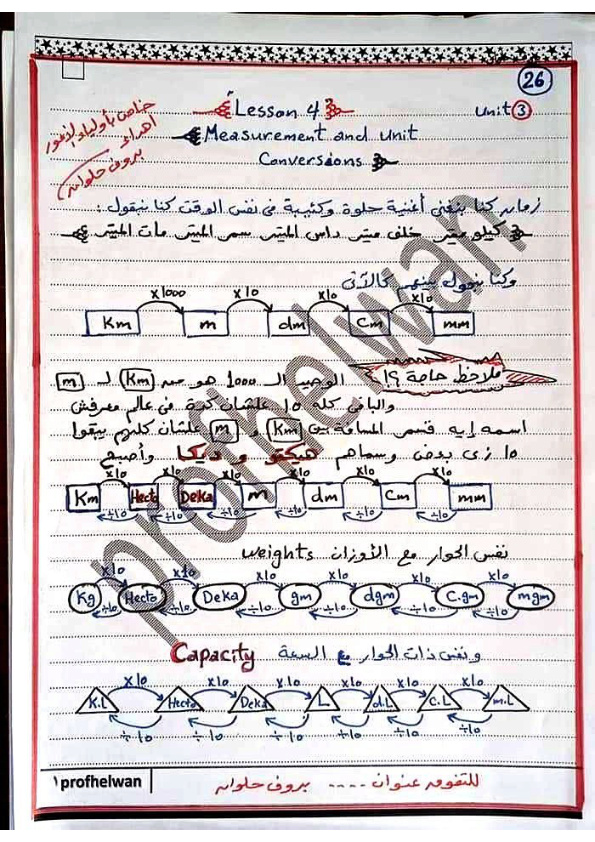 26
Lesson 4
Unit 3
خاص بأولياء الأمور
Measurement and Unit
اهداء
Conversions
بروف حلوان
زمان كنا بنغني أغنية حلوة وكئيبة في نفس الوقت كنا بنقول :
كيلو متر خلف متر داس المتر سم المتر مات المتر
وكنا بنحول بينهم كالآتى
x1000 x10 x10 x10
Km m dm Cm mm
ملاحظ حاجة ؟!
الوحيد الـ 1000 هو من Km لـ m
والباقى كله 10 علشان كدة فى عالم معرفش
اسمه إيه قسم المسافة بين Km و m علشان كلهم يبقوا
10 زى بعض وسماهم هيكتو و ديكا وأصبح
x10 x10 x10 x10 x10 x10
Km Hecto Deka m dm Cm mm
÷10 ÷10 ÷10 ÷10 ÷10 ÷10
نفس الحوار مع الأوزان weights
x10 x10 x10 x10 x10 x10
Kg Hecto Deka gm dgm C.gm mgm
÷10 ÷10 ÷10 ÷10 ÷10 ÷10
ونفس ذات الحوار مع السعة Capacity
x10 x10 x10 x10 x10 x10
K.L Hecto Deka L d.L C.L m.L
÷10 ÷10 ÷10 ÷10 ÷10 ÷10
profhelwan
profhelwan
للتفوق عنوان .... بروف حلوان